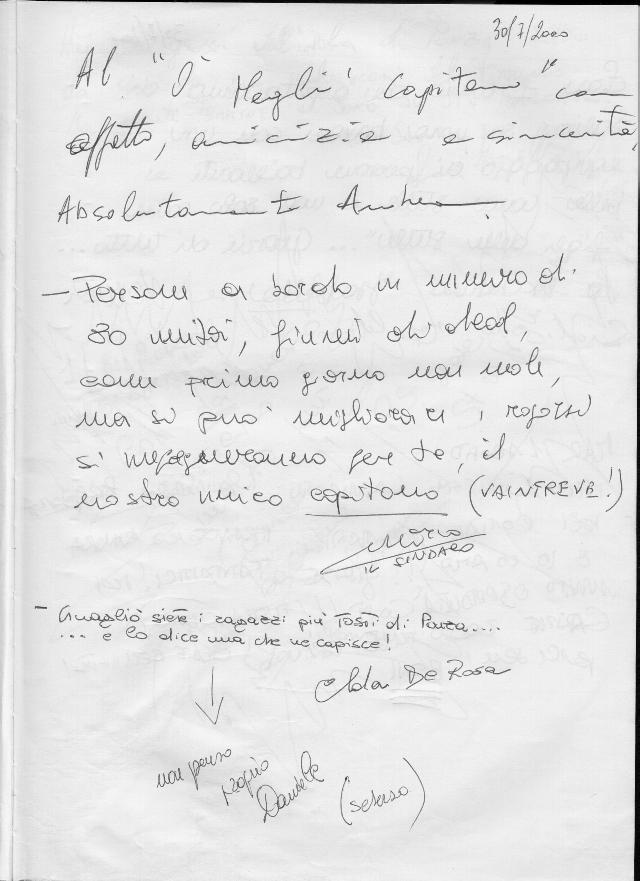 30/7/2000
Al "O' Megli' Capitano" con
affetto, amicizia e sincerità,
Absolutamente Andrea
- Persone a bordo in numero di
80 unità, fiumi di alcool,
come primo giorno non male,
ma si può migliorare, i ragazzi
si impegneranno per te, il
nostro unico capitano (VAINTREVE!)
Mirco
IL SINDACO
- Guagliò siete i ragazzi più tosti di Ponza....
.... e lo dice una che ne capisce!
Elda De Rosa
non penso
proprio
Daniele
(scherzo)